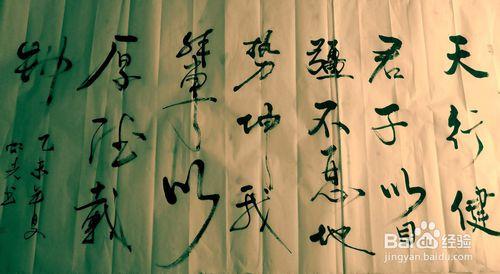 天行健
君子以自
不息地
勢坤我
輩以
厚德載
乙未年夏
Baidu经验
jingyan.baidu.com